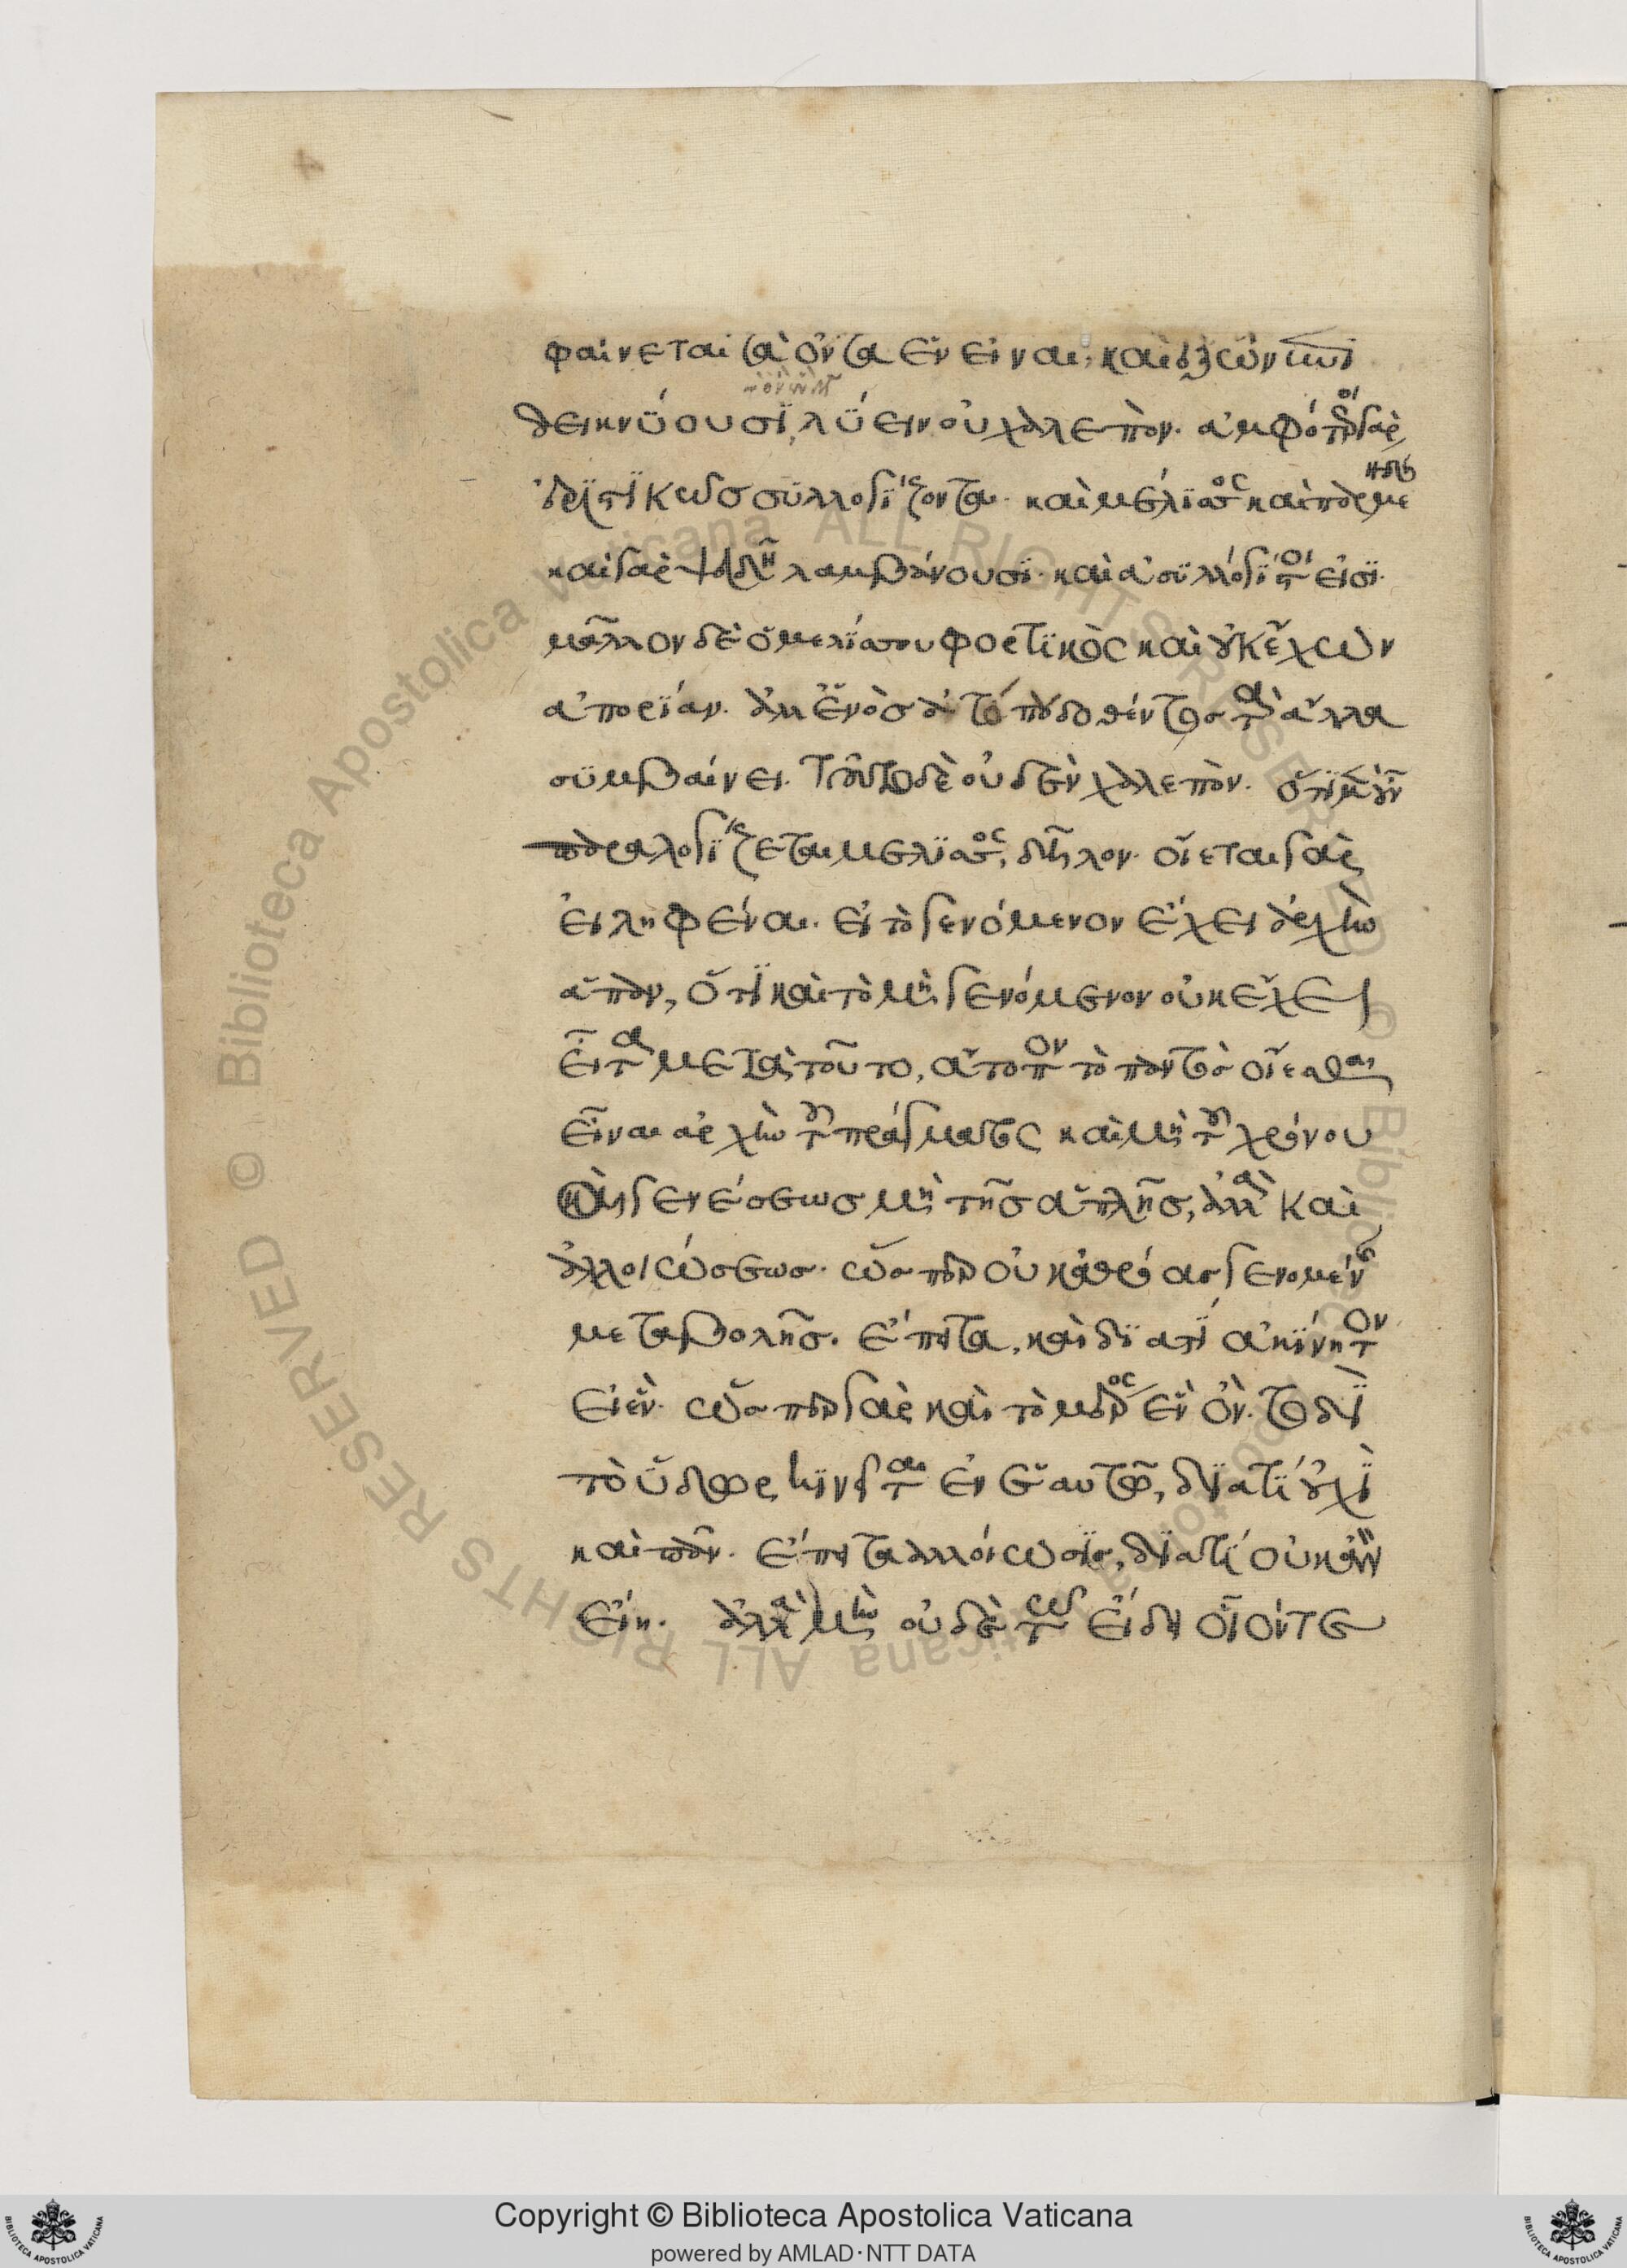 φαίνεται τὰ ὄντα ἓν εἶναι, καὶ ἐξ ὧν ἐπι
δεικνύουσι, λύειν οὐ χαλεπόν. ἀμφότεροι γὰρ
ἐριστικῶς συλλογίζονται. καὶ μέλισσος καὶ παρμε
νίδης
καὶ γὰρ ψευδῆ λαμβάνουσι. καὶ ἀσυλλόγιστοί εἰσι.
μᾶλλον δὲ ὁ μελίσσου φορτικὸς καὶ οὐκ ἔχων
ἀπορίαν. ἀλλ ἑνὸς ἀτόπου δοθέντος τὰ ἄλλα
συμβαίνει. τοῦτο δὲ οὐδὲν χαλεπόν. ὅτι μὲν οὖν
παραλογίζεται μέλισσος, δῆλον. οἴεται γὰρ
εἰληφέναι. εἰ τὸ γενόμενον ἔχει ἀρχὴν
ἅπαν, ὅτι καὶ τὸ μὴ γενόμενον οὐκ ἔχει
εἶτα μετὰ τοῦτο, ἄτοπον τὸ παντὸς οἴεσθαι
εἶναι ἀρχὴν τοῦ πράγματος καὶ μὴ τοῦ χρόνου
καὶ γενέσεως μὴ τῆς ἁπλῆς, ἀλλὰ καὶ
ἀλλοιώσεως. ὥσπερ οὐκ ἀθρόας γενομένης
μεταβολῆς. ἔπειτα, καὶ διατί ἀκίνητον
εἰ ἕν. ὥσπερ γὰρ καὶ τὸ μέρος ἓν ὄν. τοδὶ
τὸ ὕδωρ κινεῖται ἐν ἑαυτῷ, διατί οὐχὶ
καὶ τὸ πᾶν. ἔπειτα ἀλλοίωσις, διατί οὐκ ἂν
εἴη. ἀλλὰ μὴν οὐδὲ τῷ εἴδει οἷόν τε
Copyright © Biblioteca Apostolica Vaticana
powered by AMLAD·NTT DATA
© Biblioteca Apostolica Vaticana ALL RIGHTS RESERVED